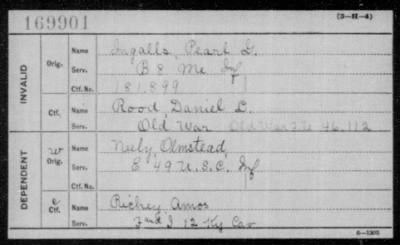 169901
(3-H-4)
INVALID
Orig.
Name Ingalls, Pearl D.
Serv. B 8 Me Inf
Ctf. No. 181,899
Ctf.
Name Rood, Daniel L.
Serv. Old War Old War 46,112
DEPENDENT
W Orig.
Name Neely, Olmstead,
Serv. E 49 U.S.C. Inf
C Ctf.
Name Richey Amos
Serv. 2nd I 12 Ky Cav
6-1305